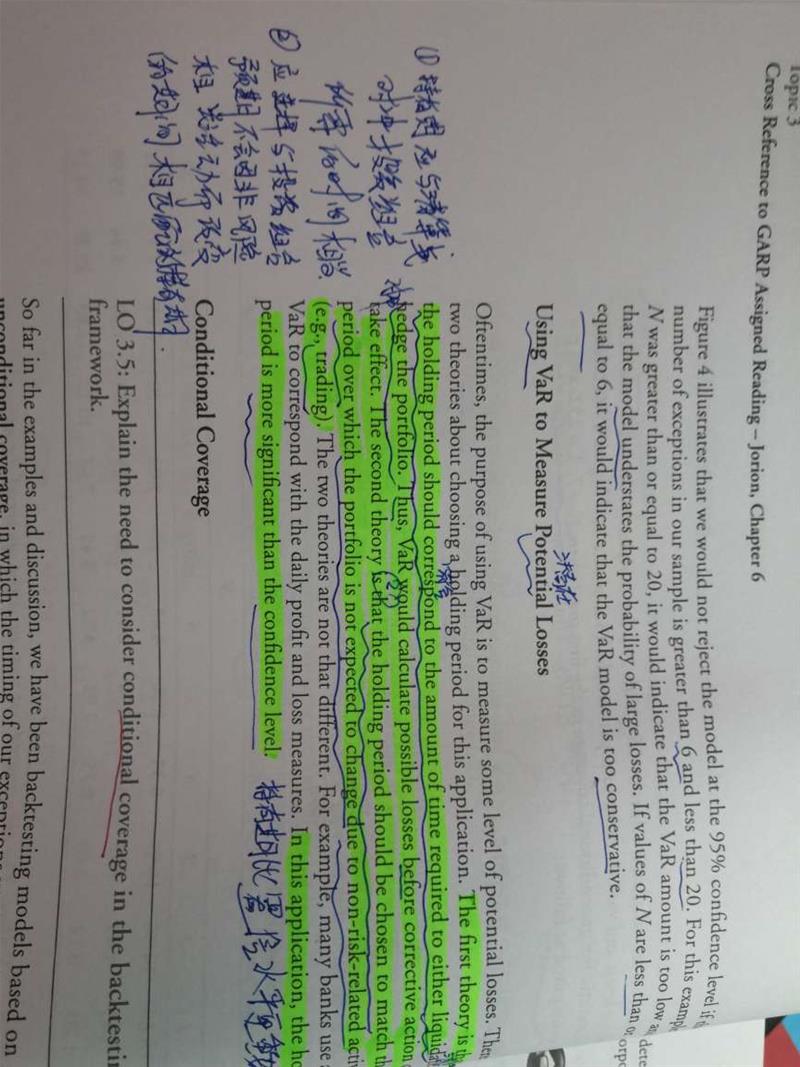 Topic 3
Cross Reference to GARP Assigned Reading – Jorion, Chapter 6
Figure 4 illustrates that we would not reject the model at the 95% confidence level if
number of exceptions in our sample is greater than 6 and less than 20. For this
N was greater than or equal to 20, it would indicate that the VaR amount is too low
that the model understates the probability of large losses. If values of N are less than
equal to 6, it would indicate that the VaR model is too conservative.
Using VaR to Measure Potential Losses
Oftentimes, the purpose of using VaR is to measure some level of potential losses.
two theories about choosing a holding period for this application. The first theory is
the holding period should correspond to the amount of time required to either
hedge the portfolio. Thus, VaR would calculate possible losses before corrective action
take effect. The second theory is that the holding period should be chosen to match
period over which the portfolio is not expected to change due to non-risk-related
(e.g., trading). The two theories are not that different. For example, many banks use
VaR to correspond with the daily profit and loss measures. In this application, the
period is more significant than the confidence level.
① 持有期应与清算或
对冲投资组合
所需的时间相
② 应选择与投资组合
预期不会因非风险
相关活动而改变
的期间相匹配的持有期.
Conditional Coverage
LO 3.5: Explain the need to consider conditional coverage in the
framework.
So far in the examples and discussion, we have been backtesting models based on
unconditional coverage, in which the timing of our exceptions